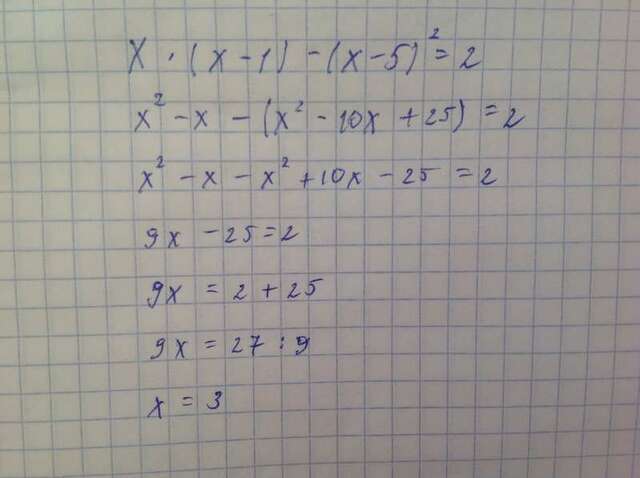 x · (x - 1) - (x - 5)² = 2
x² - x - (x² - 10x + 25) = 2
x² - x - x² + 10x - 25 = 2
9x - 25 = 2
9x = 2 + 25
9x = 27 : 9
x = 3